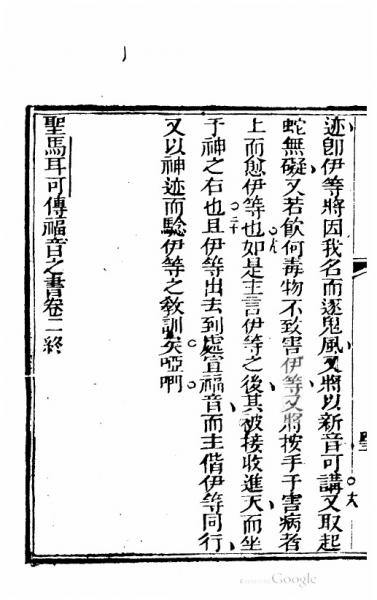 迹卽伊等將因我名而逐鬼風又將以新音可講又取起
蛇無礙又若飲何毒物不致害伊等又將按手于害病者
上而愈伊等也如是主言伊等之後其被接收進天而坐
于神之右也且伊等出去到處宣福音而主偕伊等同行
又以神迹而騐伊等之教訓矣啞們
聖馬耳可傳福音之書卷二終
Google